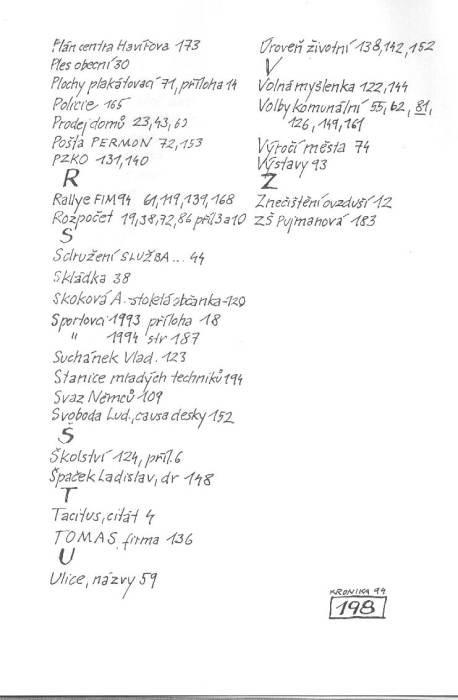 Plán centra Havířova 173
Ples obecní 30
Plochy plakátovací 71, příloha 14
Policie 165
Prodej domů 23,43,63
Pošta PERMON 72,153
PZKO 131,140
R
Rallye FIM 94 61,119,139,168
Rozpočet 19,38,72,86 příl 3 a 10
S
Sdružení SLUŽBA... 44
Skládka 38
Skoková A. stoletá občanka 120
Sportovci 1993 příloha 18
" 1994 str 187
Suchánek Vlad. 123
Stanice mladých techniků 194
Svaz Němců 109
Svoboda Lud., causa desky 152
Š
Školství 124, příl. 6
Špaček Ladislav, dr 148
T
Tacitus, citát 4
TOMAS, firma 136
U
Ulice, názvy 59
Úroveň životní 138,142,152
V
Volná myšlenka 122,144
Volby komunální 55, 62, 81,
126, 149, 161
Výročí města 74
Výstavy 93
Z
Znečištění ovzduší 12
ZŠ Pujmanová 183
KRONIKA 94
198